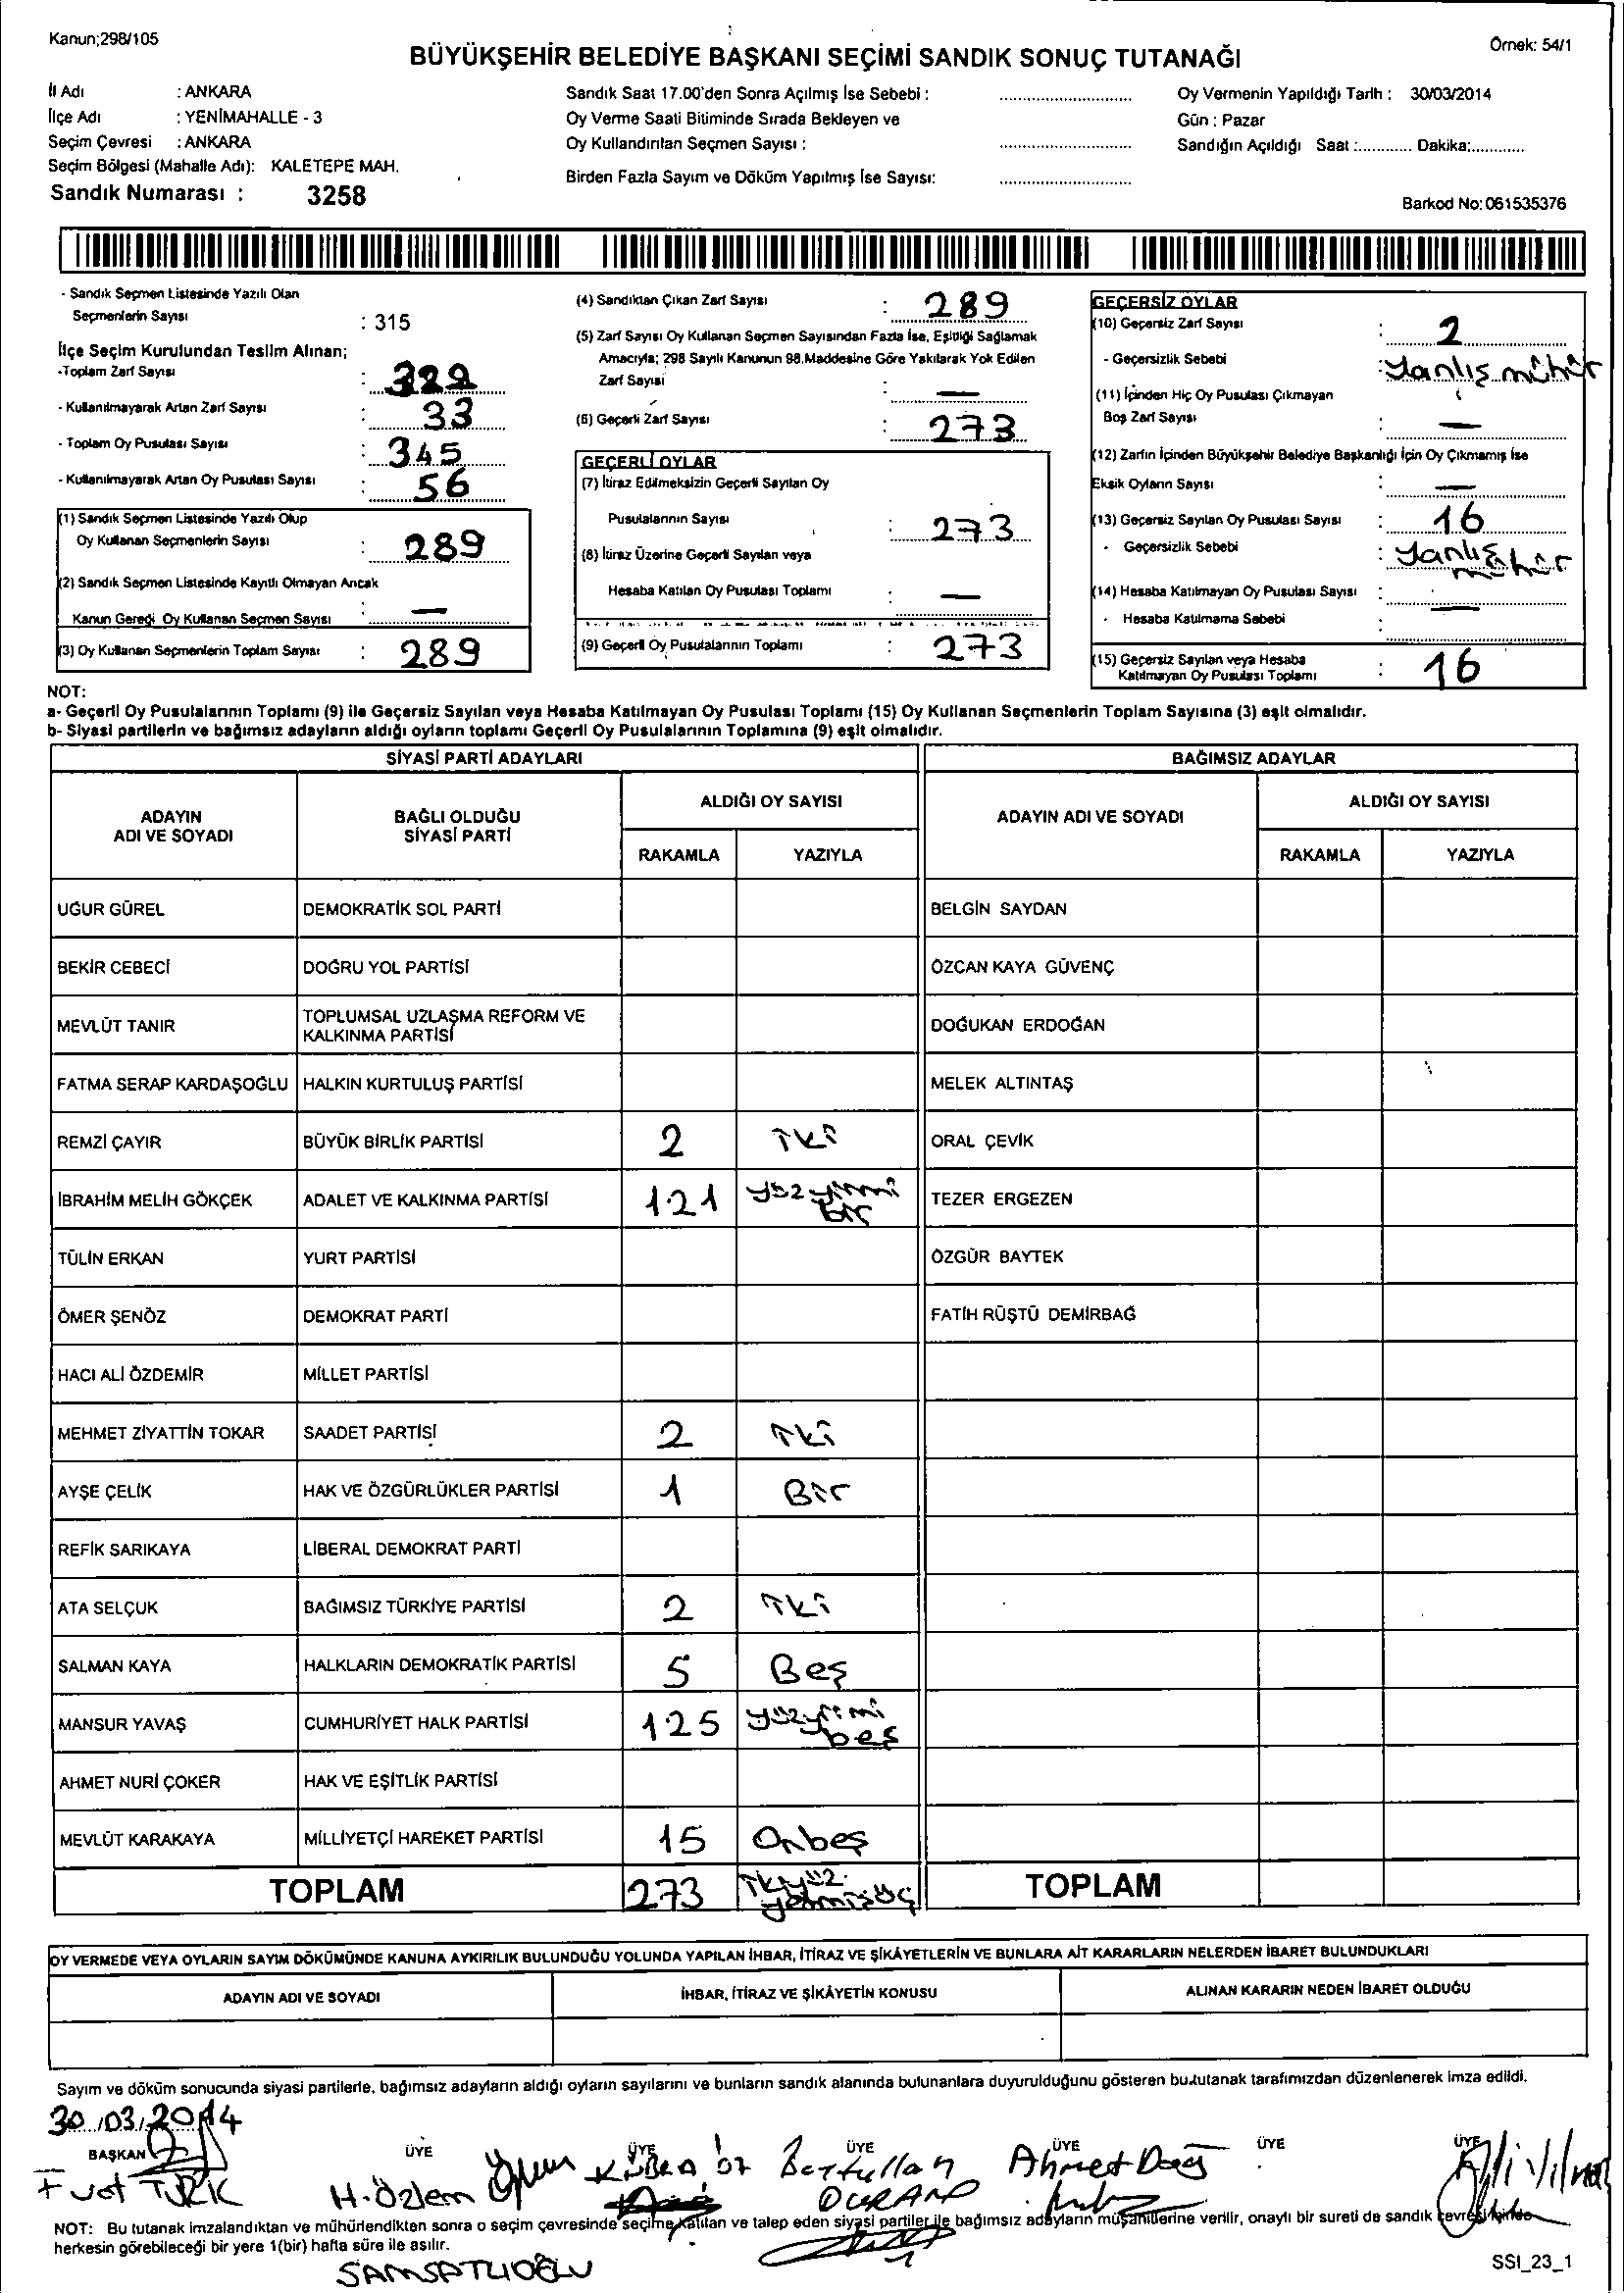 Kanun;298/105
Örnek: 54/1
BÜYÜKŞEHİR BELEDİYE BAŞKANI SEÇİMİ SANDIK SONUÇ TUTANAĞI
İl Adı : ANKARA
İlçe Adı : YENİMAHALLE - 3
Seçim Çevresi : ANKARA
Seçim Bölgesi (Mahalle Adı): KALETEPE MAH.
Sandık Numarası : 3258
Sandık Saat 17.00'den Sonra Açılmış İse Sebebi :
Oy Verme Saati Bitiminde Sırada Bekleyen ve
Oy Kullandırılan Seçmen Sayısı :
Birden Fazla Sayım ve Döküm Yapılmış İse Sayısı:
Oy Vermenin Yapıldığı Tarih : 30/03/2014
Gün : Pazar
Sandığın Açıldığı Saat :............ Dakika:............
Barkod No: 061535376
- Sandık Seçmen Listesinde Yazılı Olan
Seçmenlerin Sayısı : 315
İlçe Seçim Kurulundan Teslim Alınan;
-Toplam Zarf Sayısı :
- Kullanılmayarak Artan Zarf Sayısı : 33
- Toplam Oy Pusulası Sayısı : 345
- Kullanılmayarak Artan Oy Pusulası Sayısı : 56
(1) Sandık Seçmen Listesinde Yazılı Olup
Oy Kullanan Seçmenlerin Sayısı : 289
(2) Sandık Seçmen Listesinde Kayıtlı Olmayan Ancak
Kanun Gereği Oy Kullanan Seçmen Sayısı : —
(3) Oy Kullanan Seçmenlerin Toplam Sayısı : 289
(4) Sandıktan Çıkan Zarf Sayısı : 289
(5) Zarf Sayısı Oy Kullanan Seçmen Sayısından Fazla İse, Eşitliği Sağlamak
Amacıyla; 298 Sayılı Kanunun 98.Maddesine Göre Yakılarak Yok Edilen
Zarf Sayısı : —
(6) Geçerli Zarf Sayısı : 273
GEÇERLİ OYLAR
(7) İtiraz Edilmeksizin Geçerli Sayılan Oy
Pusulalarının Sayısı : 273
(8) İtiraz Üzerine Geçerli Sayılan veya
Hesaba Katılan Oy Pusulası Toplamı : —
(9) Geçerli Oy Pusulalarının Toplamı : 273
GEÇERSİZ OYLAR
(10) Geçersiz Zarf Sayısı : 2
- Geçersizlik Sebebi : Yanlış mühür
(11) İçinden Hiç Oy Pusulası Çıkmayan
Boş Zarf Sayısı : —
(12) Zarfın İçinden Büyükşehir Belediye Başkanlığı İçin Oy Çıkmamış İse
Eksik Oyların Sayısı : —
(13) Geçersiz Sayılan Oy Pusulası Sayısı : 16
- Geçersizlik Sebebi : Yanlış mühür
(14) Hesaba Katılmayan Oy Pusulası Sayısı : —
- Hesaba Katılmama Sebebi :
(15) Geçersiz Sayılan veya Hesaba
Katılmayan Oy Pusulası Toplamı : 16
NOT:
a- Geçerli Oy Pusulalarının Toplamı (9) ile Geçersiz Sayılan veya Hesaba Katılmayan Oy Pusulası Toplamı (15) Oy Kullanan Seçmenlerin Toplam Sayısına (3) eşit olmalıdır.
b- Siyasi partilerin ve bağımsız adayların aldığı oyların toplamı Geçerli Oy Pusulalarının Toplamına (9) eşit olmalıdır.
SİYASİ PARTİ ADAYLARI
BAĞIMSIZ ADAYLAR
ADAYIN ADI VE SOYADI
BAĞLI OLDUĞU SİYASİ PARTİ
ALDIĞI OY SAYISI
RAKAMLA YAZIYLA
ADAYIN ADI VE SOYADI
ALDIĞI OY SAYISI
RAKAMLA YAZIYLA
UĞUR GÜREL DEMOKRATİK SOL PARTİ BELGİN SAYDAN
BEKİR CEBECİ DOĞRU YOL PARTİSİ ÖZCAN KAYA GÜVENÇ
MEVLÜT TANIR TOPLUMSAL UZLAŞMA REFORM VE KALKINMA PARTİSİ DOĞUKAN ERDOĞAN
FATMA SERAP KARDAŞOĞLU HALKIN KURTULUŞ PARTİSİ MELEK ALTINTAŞ
REMZİ ÇAYIR BÜYÜK BİRLİK PARTİSİ 2 İki ORAL ÇEVİK
İBRAHİM MELİH GÖKÇEK ADALET VE KALKINMA PARTİSİ 121 yüz yirmi bir TEZER ERGEZEN
TÜLİN ERKAN YURT PARTİSİ ÖZGÜR BAYTEK
ÖMER ŞENÖZ DEMOKRAT PARTİ FATİH RÜŞTÜ DEMİRBAĞ
HACI ALİ ÖZDEMİR MİLLET PARTİSİ
MEHMET ZİYATTİN TOKAR SAADET PARTİSİ 2 İki
AYŞE ÇELİK HAK VE ÖZGÜRLÜKLER PARTİSİ 1 Bir
REFİK SARIKAYA LİBERAL DEMOKRAT PARTİ
ATA SELÇUK BAĞIMSIZ TÜRKİYE PARTİSİ 2 İki
SALMAN KAYA HALKLARIN DEMOKRATİK PARTİSİ 5 Beş
MANSUR YAVAŞ CUMHURİYET HALK PARTİSİ 125 yüzyirmi beş
AHMET NURİ ÇOKER HAK VE EŞİTLİK PARTİSİ
MEVLÜT KARAKAYA MİLLİYETÇİ HAREKET PARTİSİ 15 Onbeş
TOPLAM 273 İkiyüz yetmişüç TOPLAM
OY VERMEDE VEYA OYLARIN SAYIM DÖKÜMÜNDE KANUNA AYKIRILIK BULUNDUĞU YOLUNDA YAPILAN İHBAR, İTİRAZ VE ŞİKÂYETLERİN VE BUNLARA AİT KARARLARIN NELERDEN İBARET BULUNDUKLARI
ADAYIN ADI VE SOYADI İHBAR, İTİRAZ VE ŞİKÂYETİN KONUSU ALINAN KARARIN NEDEN İBARET OLDUĞU
Sayım ve döküm sonucunda siyasi partilerle, bağımsız adayların aldığı oyların sayılarını ve bunların sandık alanında bulunanlara duyurulduğunu gösteren bu tutanak tarafımızdan düzenlenerek imza edildi.
30/03/2014
BAŞKAN ÜYE ÜYE ÜYE ÜYE ÜYE ÜYE
KÜBRA Ahmet Dağ
H. Özlem DURAN
NOT: Bu tutanak imzalandıktan ve mühürlendikten sonra o seçim çevresinde seçime katılan ve talep eden siyasi partiler ile bağımsız adayların müşahitlerine verilir, onaylı bir sureti de sandık çevresinde
herkesin görebileceği bir yere 1(bir) hafta süre ile asılır.
SAMSATLIOĞLU
SSI_23_1